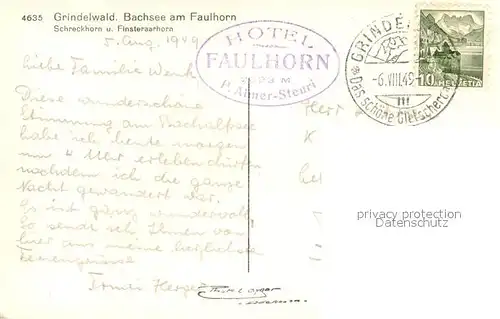 4635 Grindelwald. Bachsee am Faulhorn
Schreckhorn u. Finsteraarhorn
5. Aug. 1949
Liebe Familie Wenk
Diese wunderschöne
Stimmung am Bachalpsee
habe ich heute morgen
um 4 Uhr erleben dürfen
nachdem ich die ganze
Nacht gewandert war.
Es ist ganz wundervoll
So sendet ich Ihnen von
hier aus meine herzlichsten
Feriengrüsse
HOTEL
FAULHORN
M
Almer-Steuri
GRINDEL
-6.VIII.49
Das schöne Gletscher
10 HELVETIA
Herr
K
privacy protection
Datenschutz